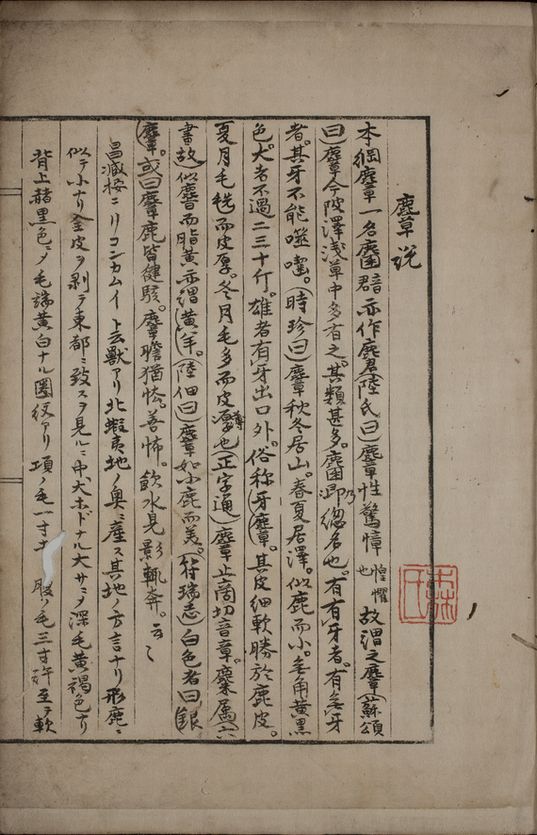 麞説
本綱麞一名麕麇亦作麏陸氏曰麞性驚慞慞懼也故謂之麞(蘇頌
曰)麞今陂澤浅草中多有之。其類甚多。麕乃總名也。有有牙者。有無牙
者。其牙不能噬嚙。(時珍曰)麞秋冬居山。春夏居澤。似鹿而小。無角黄黒
色。大者不過二三十斤。雄者有牙出口外。俗称(牙麞)。其皮細軟勝於鹿皮。
夏月毛毨而皮厚。冬月毛多而皮薄也(正字通)麞止閪切音章。麋属(六
書故)似麞而脂黄亦謂(黄羊)。(陸佃曰)麞如小鹿而美。(符瑞志)白色者曰(銀
麞)。或曰麞鹿皆健駭。麞膽猶怯。善怖。飲水見影輒奔。云々
昌臧桉ニリコンカムイト云獣アリ北蝦夷地ノ奥ニ産ス其地ノ方言ナリ形鹿ニ
似テ小ナリ全皮ヲ剥テ東都ニ致スヲ見ルニ中犬ホドナル大サニメ深毛黄褐色ナリ
背上赭黒色ニメ毛端黄白ナル圏紋アリ項ノ毛一寸 腹ノ毛三寸許至テ軟